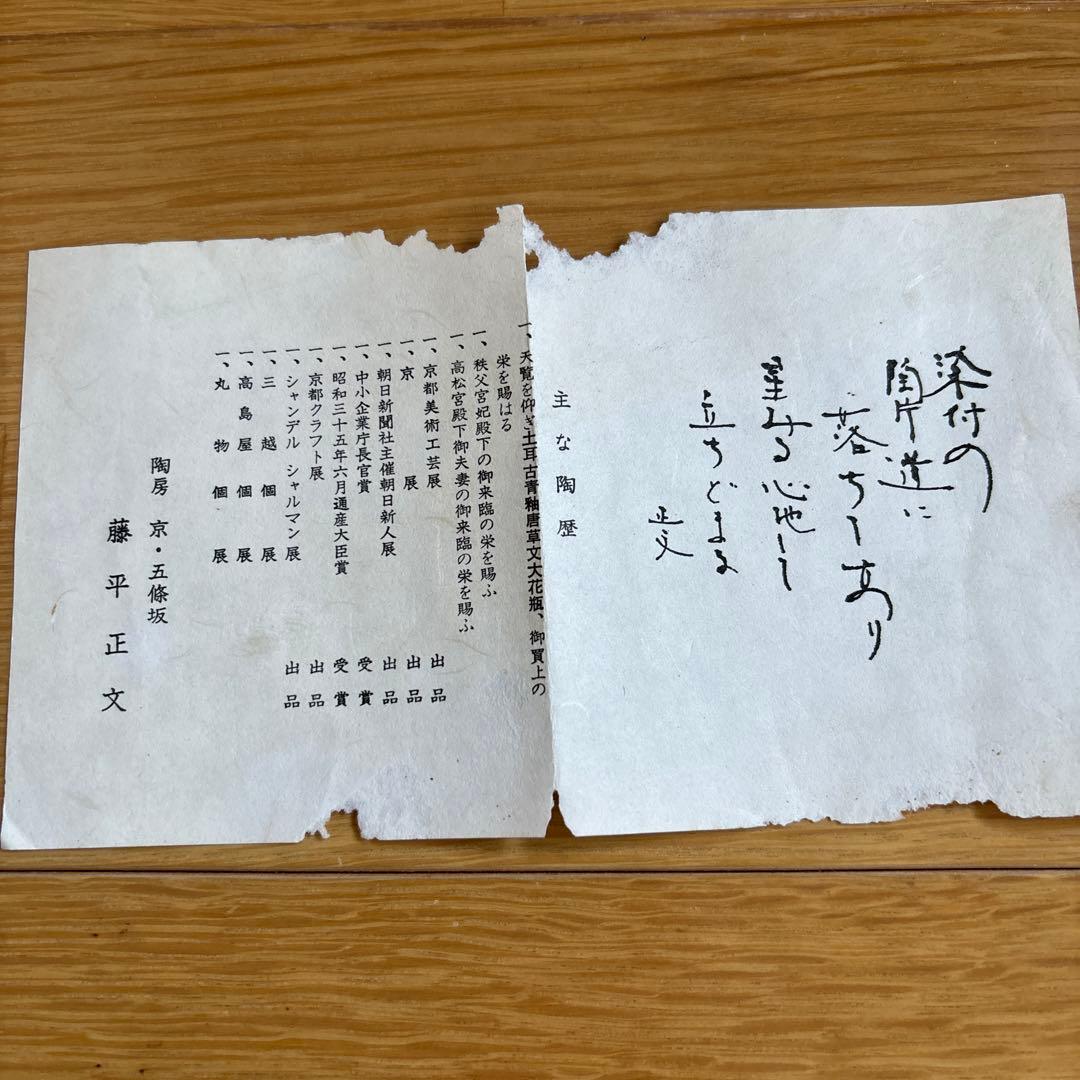 染付の
陶片道に
落ちてあり
星みる心地して
立ちどまる
正文
主な陶歴
一、天覧を仰ぎ土耳古青釉唐草文大花瓶、御買上の
栄を賜はる
一、秩父宮妃殿下の御来臨の栄を賜ふ
一、高松宮殿下御夫妻の御来臨の栄を賜ふ
一、京都美術工芸展 出品
一、京展 出品
一、朝日新聞社主催朝日新人展 出品
一、中小企業庁長官賞 受賞
一、昭和三十五年六月通産大臣賞 受賞
一、京都クラフト展 出品
一、シャンデル シャルマン展 出品
一、三越個展
一、高島屋個展
一、丸物個展
陶房 京・五條坂
藤平正文